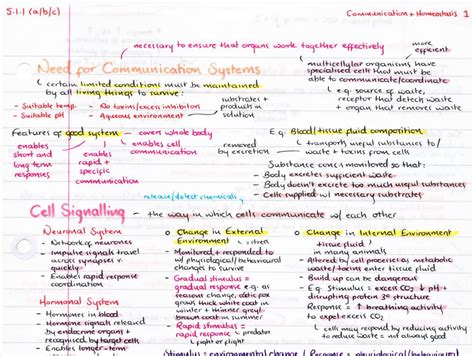 5.1.1 (a/b/c)
Communication + Homeostasis 1
necessary to ensure that organs work together effectively
more efficient
Need for Communication Systems
↳ certain limited conditions must be maintained by all living things to survive:
- Suitable temp.
- Suitable pH
- No toxins/excess inhibitors
- Aqueous environment
substrates + products in solution
↳ multicellular organisms have specialised cells that must be able to communicate/coordinate
↳ e.g. source of waste, receptor that detects waste + organ that removes waste
Features of good system - covers whole body
enables short and long term responses
enables rapid + specific communication
enables cell communication
removed by excretion
E.g. Blood/tissue fluid composition
↳ transports useful substances to/ waste + toxins from cells
Substance concs monitored so that:
- Body excretes sufficient waste
- Body doesn't excrete too much useful substances
- Cells supplied w/ necessary substrates
release/detect chemicals
Cell Signalling - the way in which cells communicate w/ each other
Neuronal System
- Network of neurones
- Impulse signals travel across synapses v. quickly
- Enables rapid response coordination
Hormonal System
- Hormones in blood
- Hormone signals released by endocrine organs + recognised by target cells
- Enables longer-term
o Change in External Environment
- Monitored + responded to w/ physiological/behavioural changes to survive
- Gradual stimulus = gradual response e.g. as seasons change, arctic fox grows thick white coat in winter + thinner grey/ brown coat in summer
- Rapid stimulus = rapid response
↳ fight or flight
o Change in Internal Environment
tissue fluid
in many animals
- Altered by cell processes as metabolic waste/toxins enter tissue fluid
- Build up can be dangerous
- E.g. Stimulus = excess CO₂ ↓ pH + disrupting protein 3° structure
Response = ↑ breathing activity to expel excess CO₂
↳ cells may respond by reducing activity to reduce waste, but this is not
Stimulus = environmental change